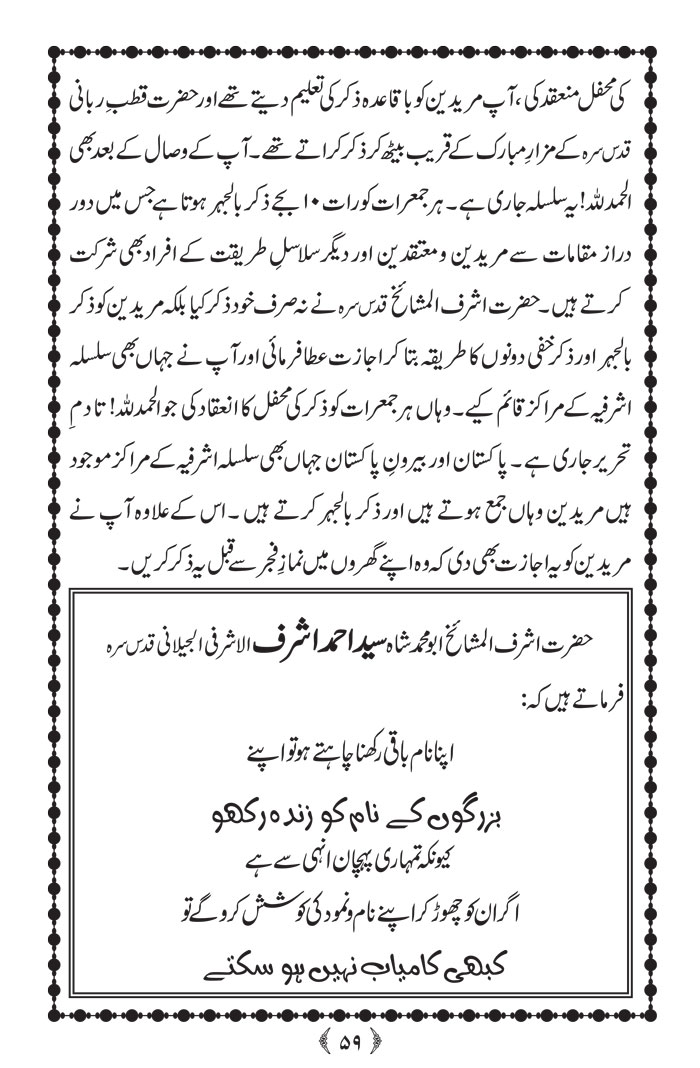 کی محفل منعقد کی، آپ مریدین کو باقاعدہ ذکر کی تعلیم دیتے تھے اور حضرت قطبِ ربانی
قدس سرہ کے مزارِ مبارک کے قریب بیٹھ کر ذکر کراتے تھے۔ آپ کے وصال کے بعد بھی
الحمدللہ! یہ سلسلہ جاری ہے۔ ہر جمعرات کو رات ۱۰ بجے ذکر بالجہر ہوتا ہے جس میں دور
دراز مقامات سے مریدین و معتقدین اور دیگر سلاسلِ طریقت کے افراد بھی شرکت
کرتے ہیں۔ حضرت اشرف المشائخ قدس سرہ نے نہ صرف خود ذکر کیا بلکہ مریدین کو ذکر
بالجہر اور ذکر خفی دونوں کا طریقہ بتا کر اجازت عطا فرمائی اور آپ نے جہاں بھی سلسلہ
اشرفیہ کے مراکز قائم کیے۔ وہاں ہر جمعرات کو ذکر کی محفل کا انعقاد کی جو الحمدللہ! تا دمِ
تحریر جاری ہے۔ پاکستان اور بیرونِ پاکستان جہاں بھی سلسلہ اشرفیہ کے مراکز موجود
ہیں مریدین وہاں جمع ہوتے ہیں اور ذکر بالجہر کرتے ہیں۔ اس کے علاوہ آپ نے
مریدین کو یہ اجازت بھی دی کہ وہ اپنے گھروں میں نمازِ فجر سے قبل یہ ذکر کریں۔
حضرت اشرف المشائخ ابو محمد شاہ سید احمد اشرف الاشرفی الجیلانی قدس سرہ
فرماتے ہیں کہ:
اپنا نام باقی رکھنا چاہتے ہو تو اپنے
بزرگوں کے نام کو زندہ رکھو
کیونکہ تمہاری پہچان انہی سے ہے
اگر ان کو چھوڑ کر اپنے نام و نمود کی کوشش کرو گے تو
کبھی کامیاب نہیں ہو سکتے
﴿ ۵۹ ﴾